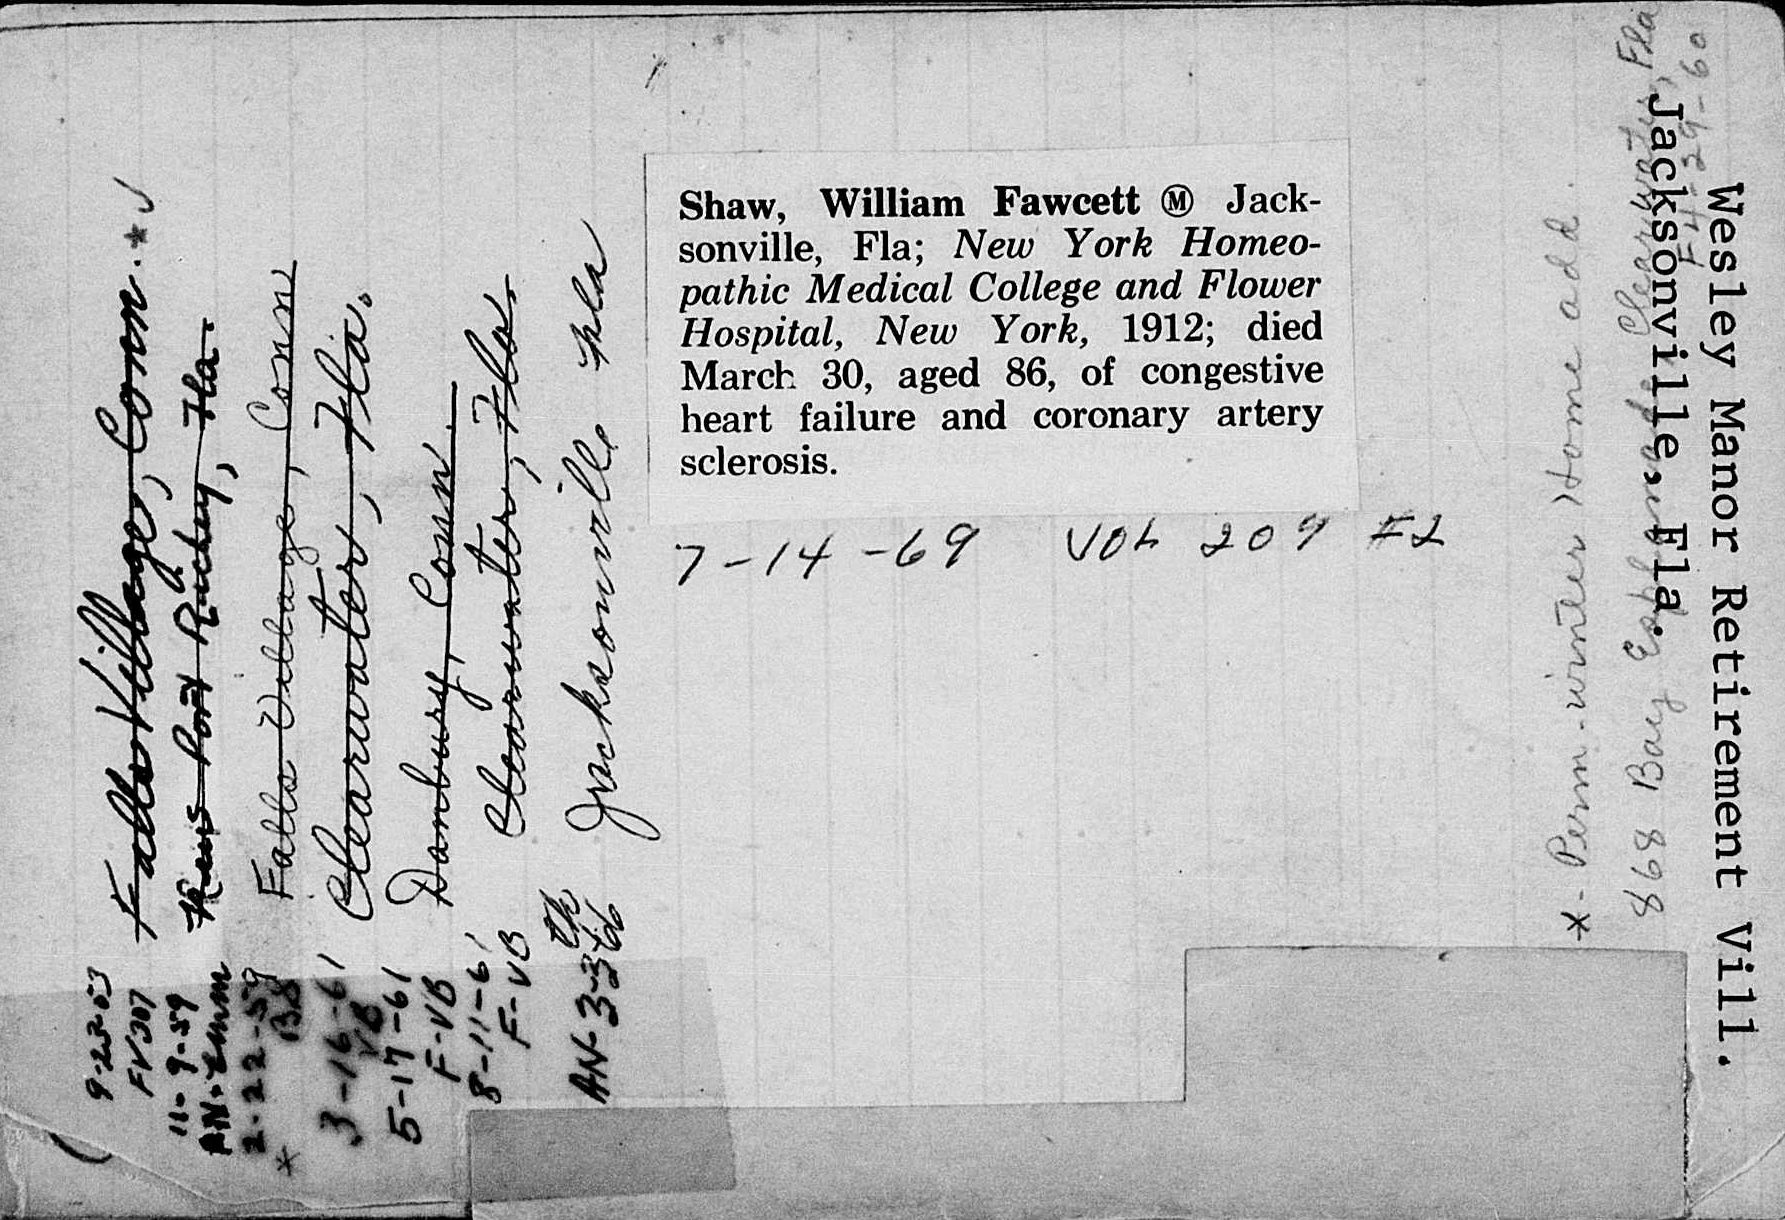 Shaw, William Fawcett Ⓜ Jack-
sonville, Fla; New York Homeo-
pathic Medical College and Flower
Hospital, New York, 1912; died
March 30, aged 86, of congestive
heart failure and coronary artery
sclerosis.
7-14-69 VOL 209 #2
9-23-53 Falls Village, Conn. *✓
FV307
11-9-59 New Port Richey, Fla.
AN-
2-22-59 Falls Village, Conn
*
3-16-61 Clearwater, Fla.
VB
5-17-61 Danbury, Conn.
F-VB
8-11-61 Clearwater, Fla.
F-VB
AN-3-366 Jacksonville Fla
*- Perm-winter Home add.
868 Bay Esplanade, Clearwater, Fla
F4-29-60
Jacksonville, Fla.
Wesley Manor Retirement Vill.